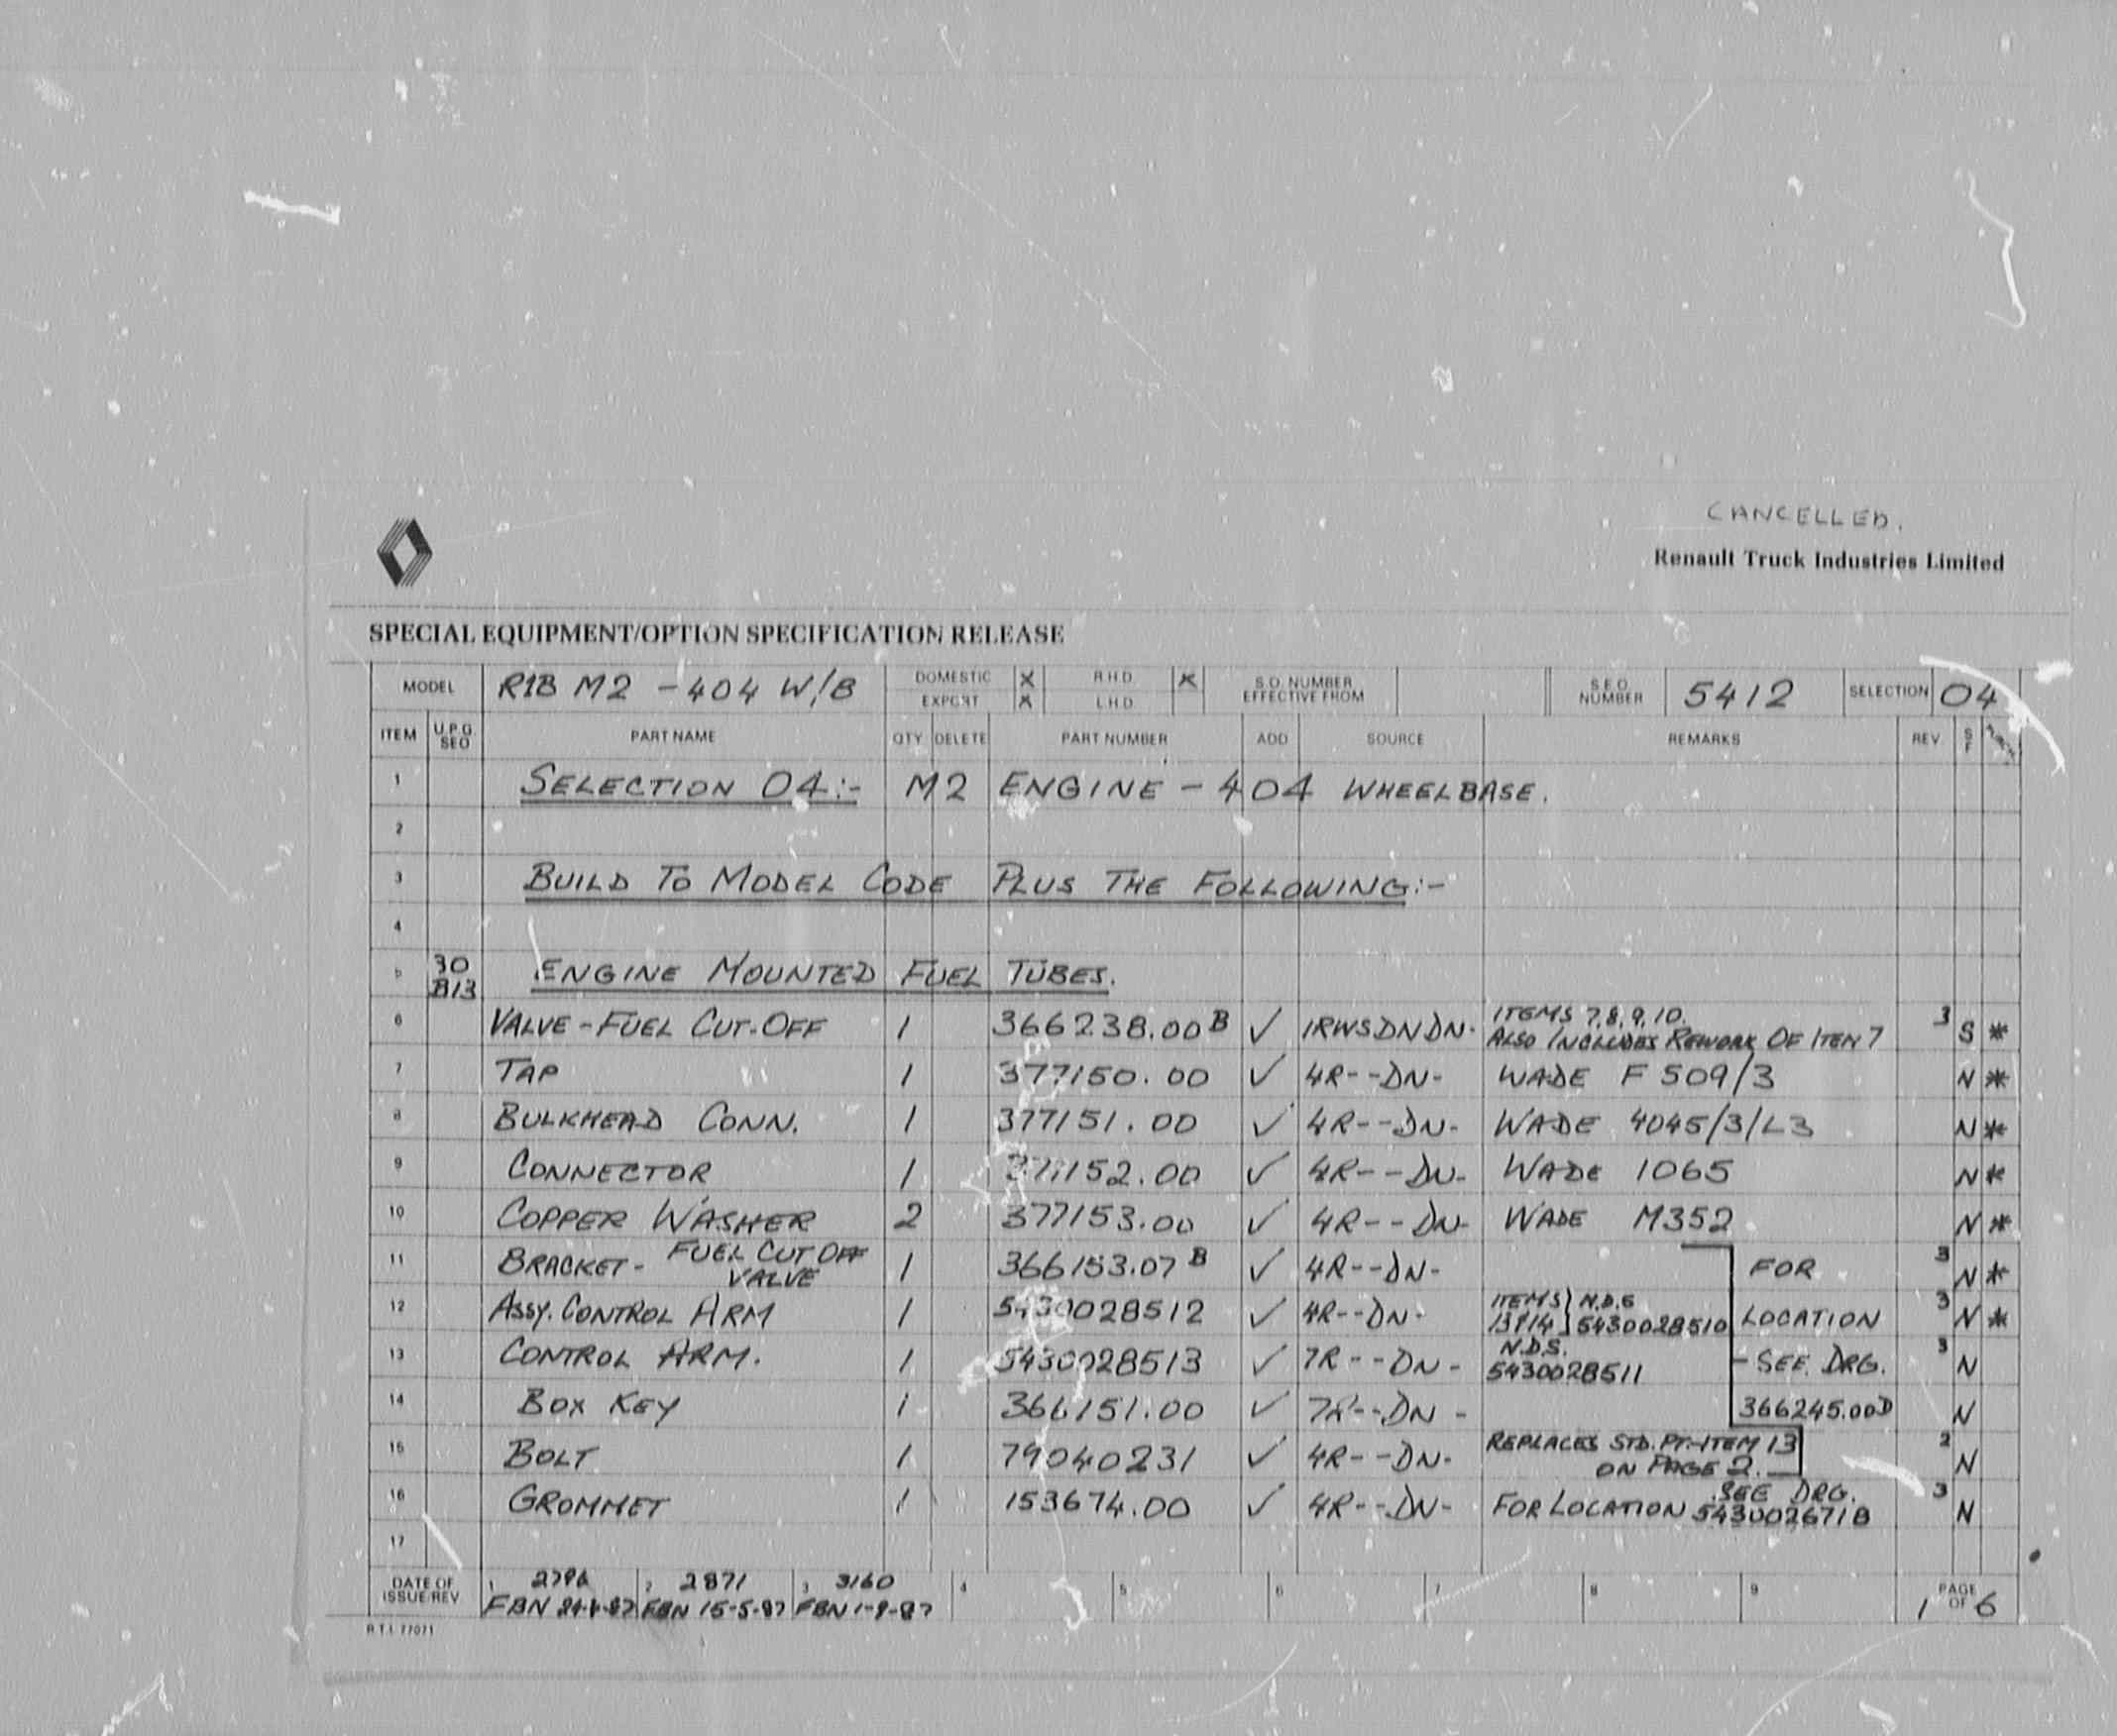 CANCELLED.
Renault Truck Industries Limited
SPECIAL EQUIPMENT/OPTION SPECIFICATION RELEASE
MODEL R1B M2 - 404 W/B DOMESTIC X R.H.D. X S.O. NUMBER EFFECTIVE FROM S.E.O. NUMBER 5412 SELECTION 04
EXPORT X L.H.D.
ITEM U.P.G. SEO PART NAME QTY DELETE PART NUMBER ADD SOURCE REMARKS REV S F
1 SELECTION 04:- M2 ENGINE - 404 WHEELBASE.
2
3 BUILD TO MODEL CODE PLUS THE FOLLOWING:-
4
5 30 B13 ENGINE MOUNTED FUEL TUBES.
6 VALVE - FUEL CUT-OFF 1 366238.00 B ✓ 1RWSDNDN- ITEMS 7,8,9,10. ALSO INCLUDES REWORK OF ITEM 7 3 S *
7 TAP 1 377150.00 ✓ 4R--DN- WADE F 509/3 N *
8 BULKHEAD CONN. 1 377151.00 ✓ 4R--DN- WADE 4045/3/L3 N *
9 CONNECTOR 1 377152.00 ✓ 4R--DN- WADE 1065 N *
10 COPPER WASHER 2 377153.00 ✓ 4R--DN- WADE M352 N *
11 BRACKET - FUEL CUT OFF VALVE 1 366153.07 B ✓ 4R--DN- FOR 3 N *
12 ASSY. CONTROL ARM 1 5430028512 ✓ 4R--DN- ITEMS 13&14 N.D.S 5430028510 LOCATION 3 N *
13 CONTROL ARM. 1 5430028513 ✓ 7R--DN- N.D.S. 5430028511 - SEE DRG. 3 N
14 BOX KEY 1 366151.00 ✓ 7R--DN- 366245.00D N
15 BOLT 1 79040231 ✓ 4R--DN- REPLACES STD. PT.-ITEM 13 ON PAGE 2. 2 N
16 GROMMET 1 153674.00 ✓ 4R--DN- FOR LOCATION SEE DRG. 543002671B 3 N
17
DATE OF ISSUE/REV 1 2 2871 3 3160 4 5 6 7 8 9 PAGE 1 OF 6
FBN FBN 15-5-87 FBN 1-9-87
R.T.I. 77071